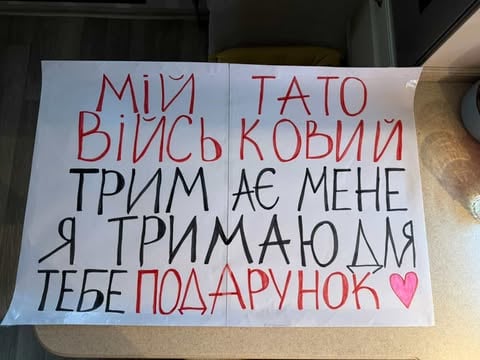 МІЙ ТАТО
ВІЙСЬКОВИЙ
ТРИМАЄ МЕНЕ
Я ТРИМАЮ ДЛЯ
ТЕБЕ ПОДАРУНОК